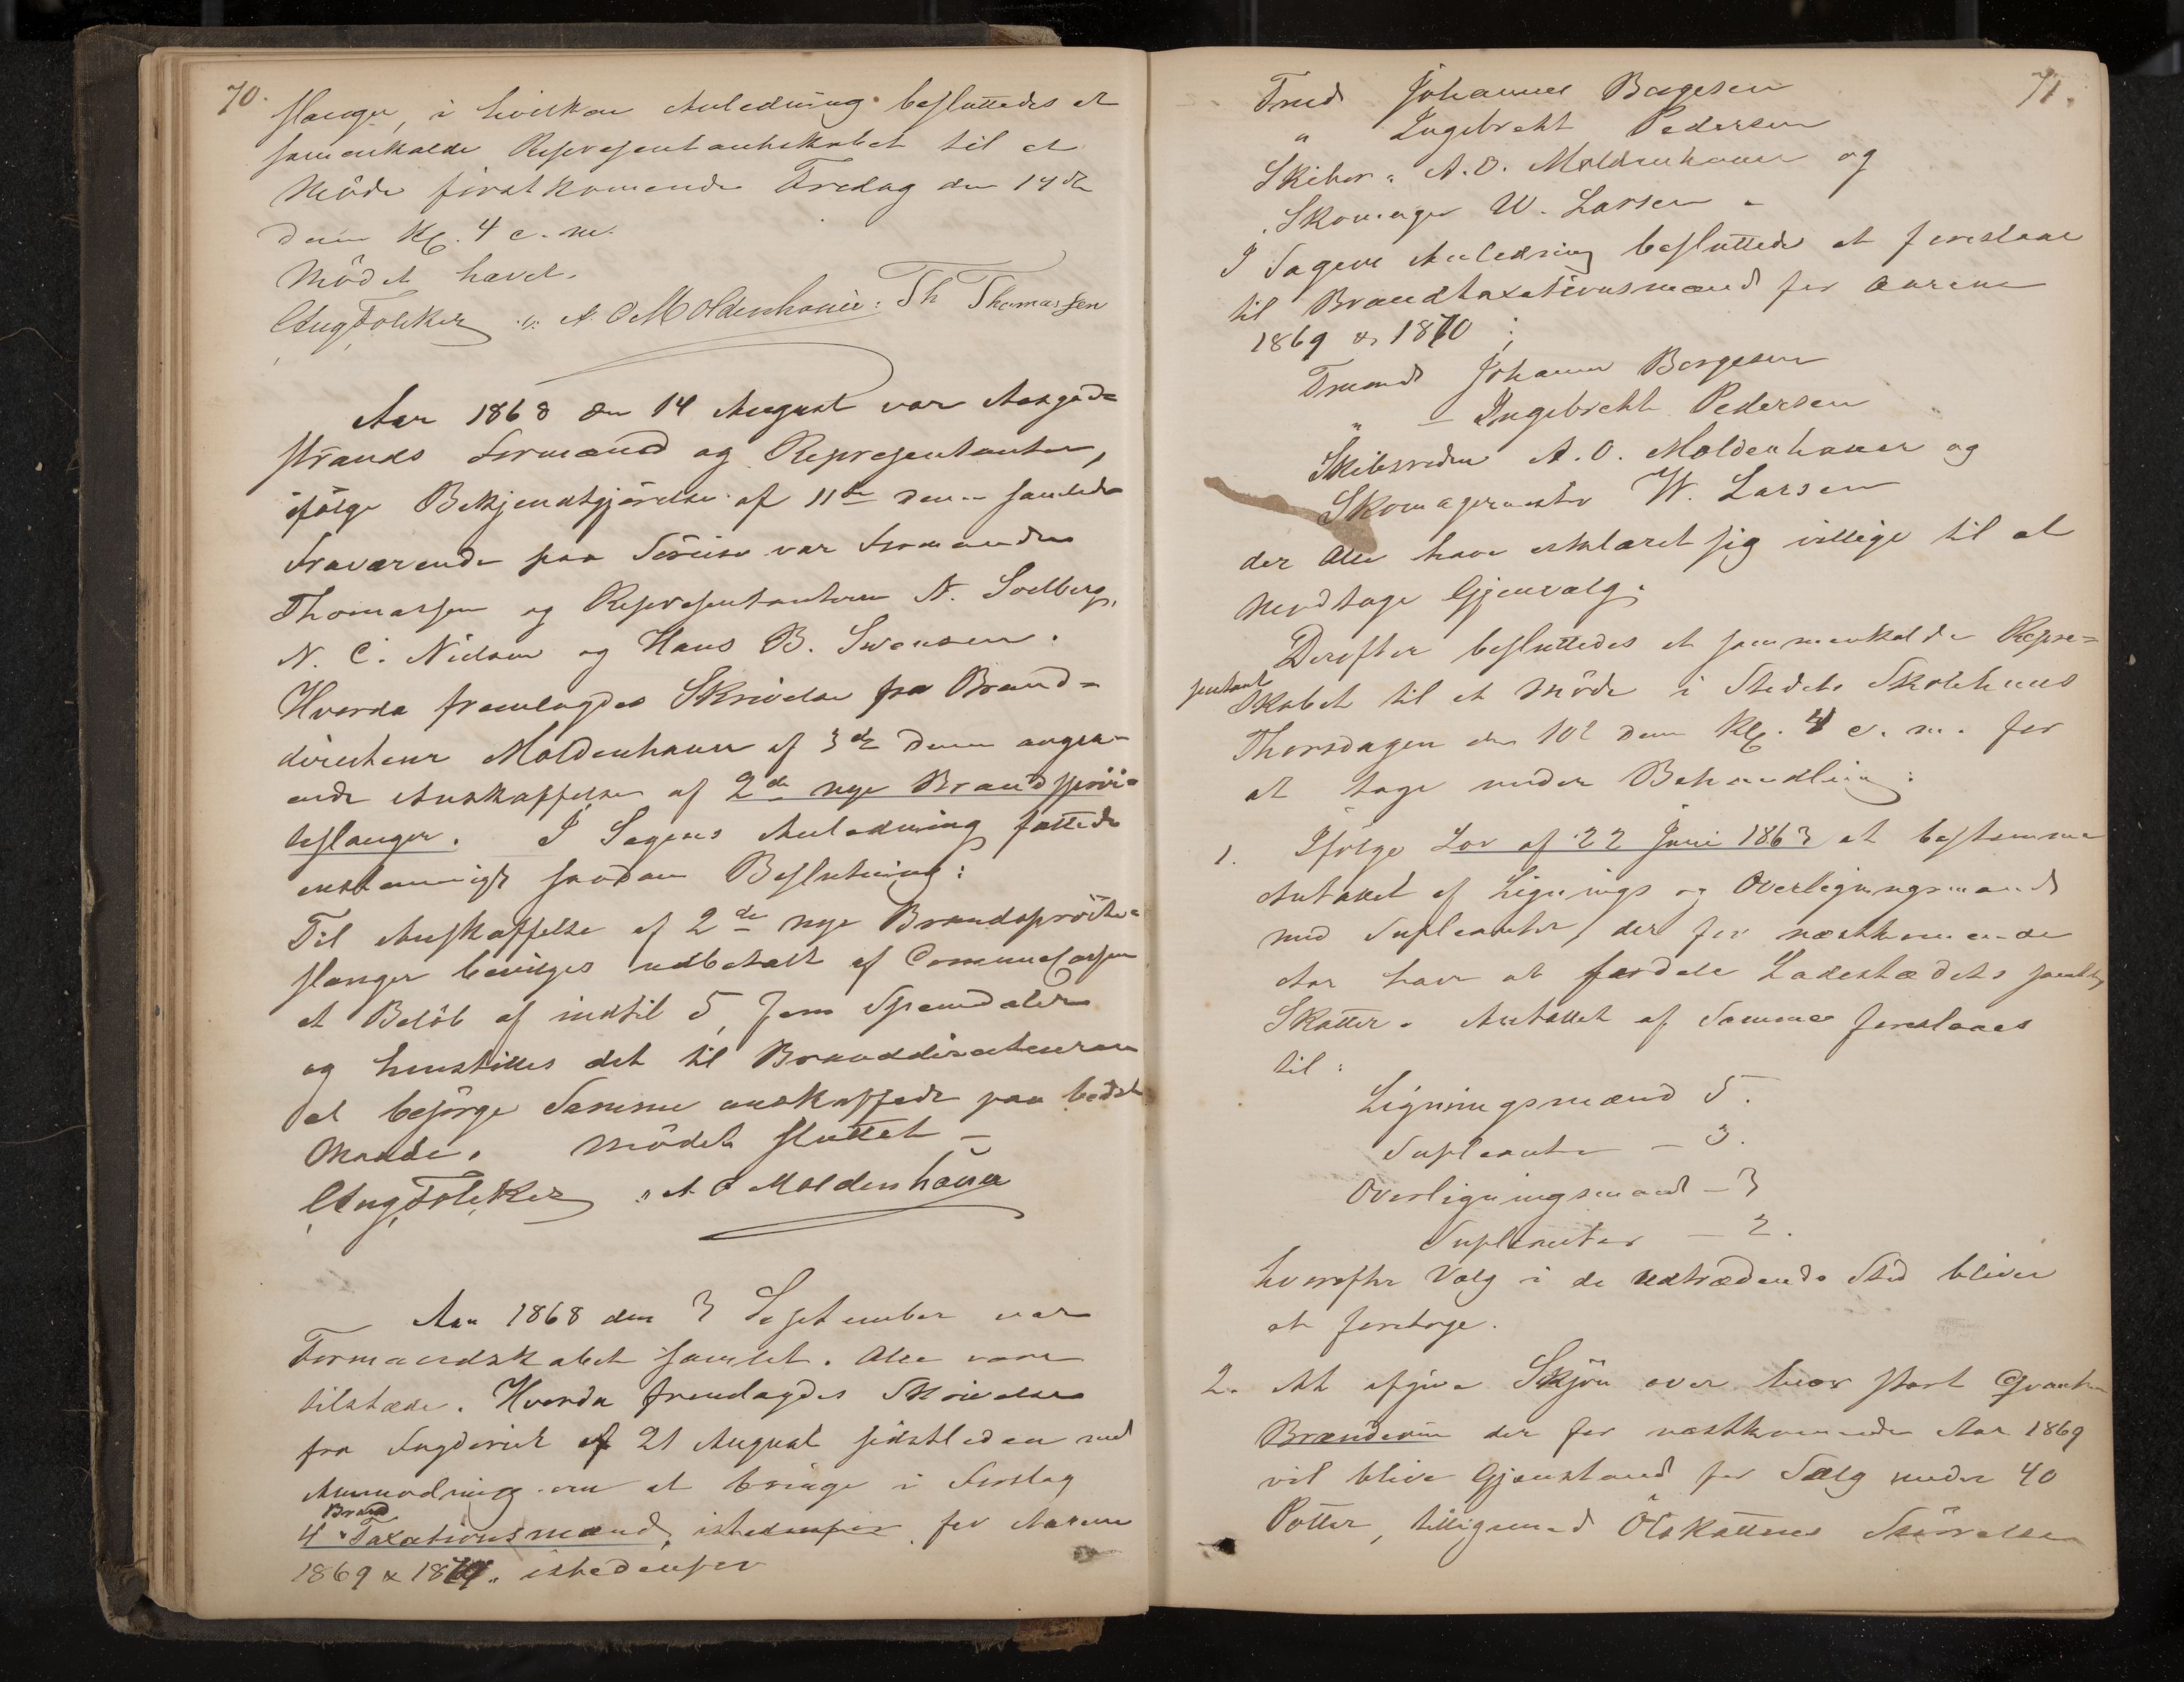 70.
slanger, i hvilken Anledning besluttedes at
samenkalde Representantskabet til et
Møde førstkomende Fredag den 14de
dennes Kl. 4 e. m.
Mødet hævet.
Aug Foleker A. O Moldenhauer Th Thomassen
Aar 1868 den 14 August var Aasgaard=
strands Formænd og Representanter,
ifølge Bekjendtgjørelse af 11te dennes samlede
Fraværende paa Søreise var Formanden
Thomassen og Representanterne N. Solberg,
N. C. Nielsen og Hans B. Svensen.
Hvorda fremlagdes Skrivelse fra Brand=
directeur Moldenhauer af 3de dennes angaa=
ende Anskaffelse af 2de nye Brandsprøi=
teslanger. I Sagens Anledning fattedes
enstemmigt saadan Beslutning:
Til Anskaffelse af 2de nye Brandsprøite=
slanger bevilges udbetalt af Communecassen
et Beløb af indtil 5, fem Speciedaler
og henstilles det til Branddirecteuren
at besørge Samme anskaffede paa bedste
Maade. Mødet sluttet —
Aug Foleker A O Moldenhauer
Aar 1868 den 3 September var
Formandskabet samlet. Alle vare
tilstæde. Hvorda fremlagdes Skrivelse
fra Fogderiet af 21 August sidstleden med
Anmodning om at bringe i Forslag
Brand
4 Taxationsmænd, istedenfor for Aarene
1869 & 1870. istedenfor
71.
Tmd Johannes Borgesen
" Ingebrekt Pedersen
Skibsr. A. O. Moldenhauer og
Skomager W. Larsen –
I Sagens Anledning besluttedes at foreslaae
til Brandtaxationsmænd for Aarene
1869 & 1870:
Tmand Johannes Borgesen
" – Ingebrekt Pedersen
Skibsreder A. O. Moldenhauer og
Skomagermester W. Larsen
der Alle have erklæret sig villige til at
modtage Gjenvalg.
Derefter besluttedes at sammenkalde Repre=
sentant
skabet til et Møde i Stedets Skolehuus
Thorsdagen den 10de dennes Kl. 4 e. m. for
at tage under Behandling:
1. Ifølge Lov af 22 Juni 1863 at bestemme
Antallet af Lignings og Overligningsmænd
med Supleanter, der for næstkommende
Aar have at fordele Ladestædets samtlige
Skatter. Antallet af Samme foreslaaes
til:
Ligningsmænd 5.
Supleanter – 3.
Overligningsmænd – 3
Suplenter – 2.
hvorefter Valg i de udtrædendes Sted bliver
at foretage.
2. At afgive Skjøn over hvor stort Qvantum
Brændeviin der for næstkommende Aar 1869
vil blive Gjenstand for Salg under 40
Potter, tilligemed Ølskattens Størrelse